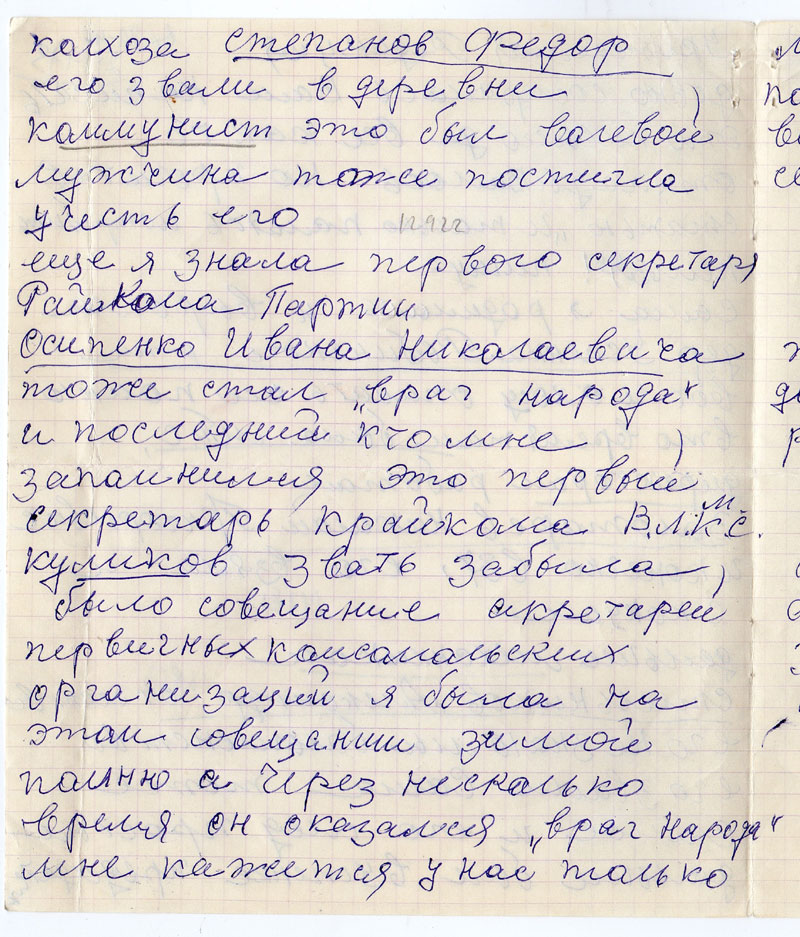 колхоза Степанов Федор
его звали в деревни ,
коммунист это был волевой
мужчина тоже постигла
участь его
12922
еще я знала первого секретаря
Райкома Партии
Осипенко Ивана Николаевича
тоже стал „враг народа"
и последний кто мне ,
запомнился это первый
секретарь Крайкома В.Л.К.С.М.
Куликов звать забыла,
было совещание секретарей
первичных комсомольских
организаций я была на
этом совещании зимой
помню а через несколько
время он оказался „враг народа"
мне кажется у нас только